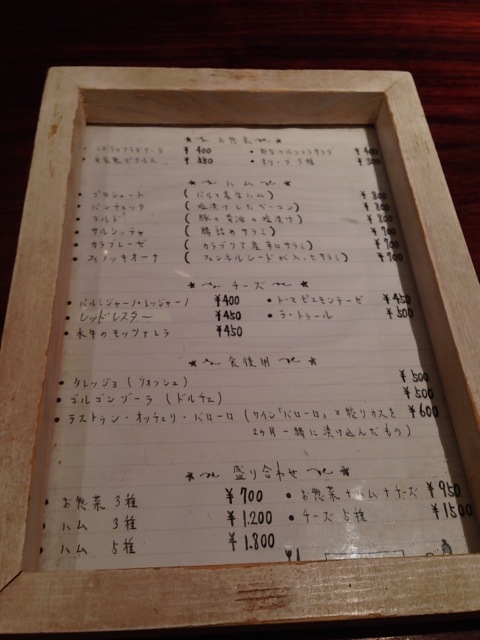 お惣菜
¥400 ¥400
自家製ピクルス ¥350 • オリーブ3種 ¥300
ハム
プロシュート (パルマ産生ハム) ¥800
パンチェッタ (塩漬けしたベーコン) ¥700
ラルド (豚の背油の塩漬け) ¥800
サルシッチャ (腸詰めサラミ) ¥700
カラブレーゼ (カラブリア産辛口サラミ) ¥700
フィノッキオーナ (フェンネルシードが入ったサラミ) ¥700
チーズ
• パルミジャーノ・レッジャーノ ¥400 • トーマピエモンテーゼ ¥450
• レッドレスター ¥450 • ラ・トゥール ¥500
• 水牛のモッツァレラ ¥450
食後用
• タレッジョ (ウォッシュ) ¥500
• ゴルゴンゾーラ (ドルチェ) ¥500
• ラストゥン・オッチェリ・バローロ (ワイン「バローロ」と搾りカスを ¥600
2ヶ月一緒に漬け込んだもの)
盛り合わせ
• お惣菜 3種 ¥700 • お惣菜+ハム+チーズ ¥950
• ハム 3種 ¥1.200 • チーズ 5種 ¥1500
• ハム 5種 ¥1.800